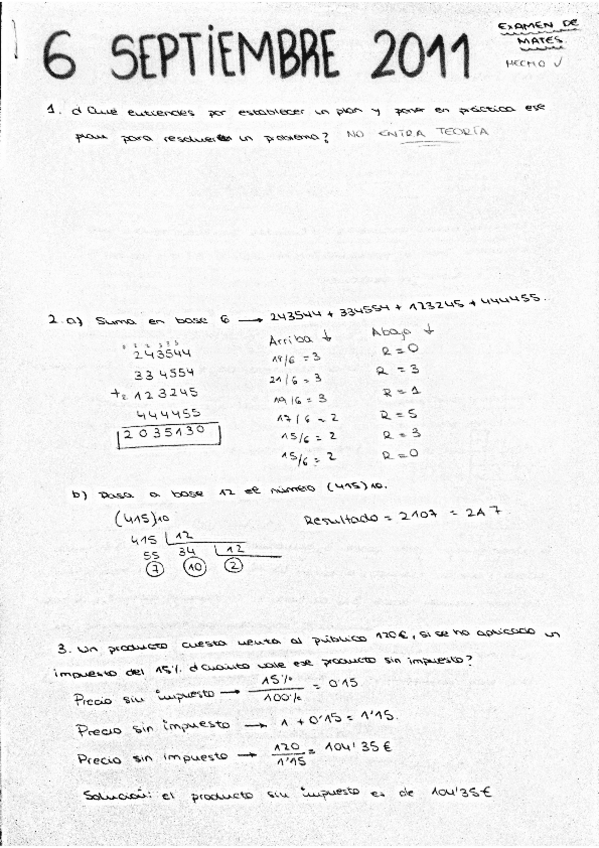 6 SEPTIEMBRE 2011
EXAMEN DE
MATES
HECHO √
1. ¿Qué entiendes por establecer un plan y poner en práctica ese
plan para resolver un problema? NO ENTRA TEORÍA
2. a) Suma en base 6 → 243544 + 334554 + 123245 + 444455.
243544
334554
+2 123245
444455
2035130
Arriba ↓
18/6 = 3
21/6 = 3
19/6 = 3
17/6 = 2
15/6 = 2
15/6 = 2
Abajo ↓
R = 0
R = 3
R = 1
R = 5
R = 3
R = 0
b) Pasa a base 12 el número (415)10.
(415)10
415 12
55 34 12
7 10 2
Resultado = 2107 = 2A7
3. Un producto cuesta venta al público 120€, si se ha aplicado un
impuesto del 15%. ¿Cuánto vale ese producto sin impuesto?
Precio sin impuesto → 15% / 100% = 0'15
Precio sin impuesto → 1 + 0'15 = 1'15.
Precio sin impuesto → 120 / 1'15 = 104'35€
Solución: el producto sin impuesto es de 104'35€